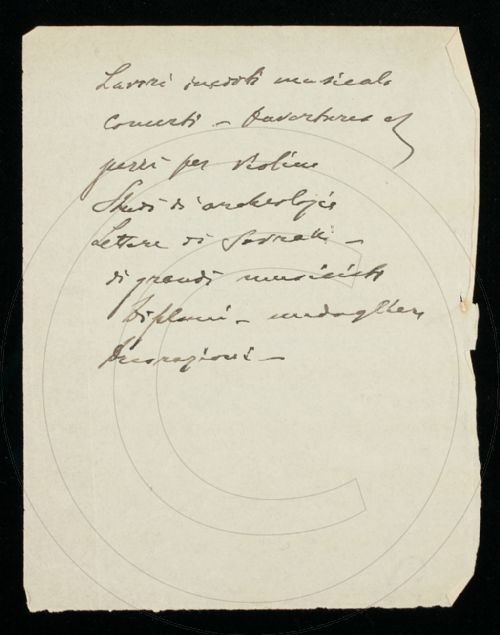 Lavori inediti musicali
concerti – Ouvertures e
pezzi per violino
Studi di archeologia
Lettere di Sovrani –
di grandi musicisti
Diplomi – medagliere
Decorazioni –